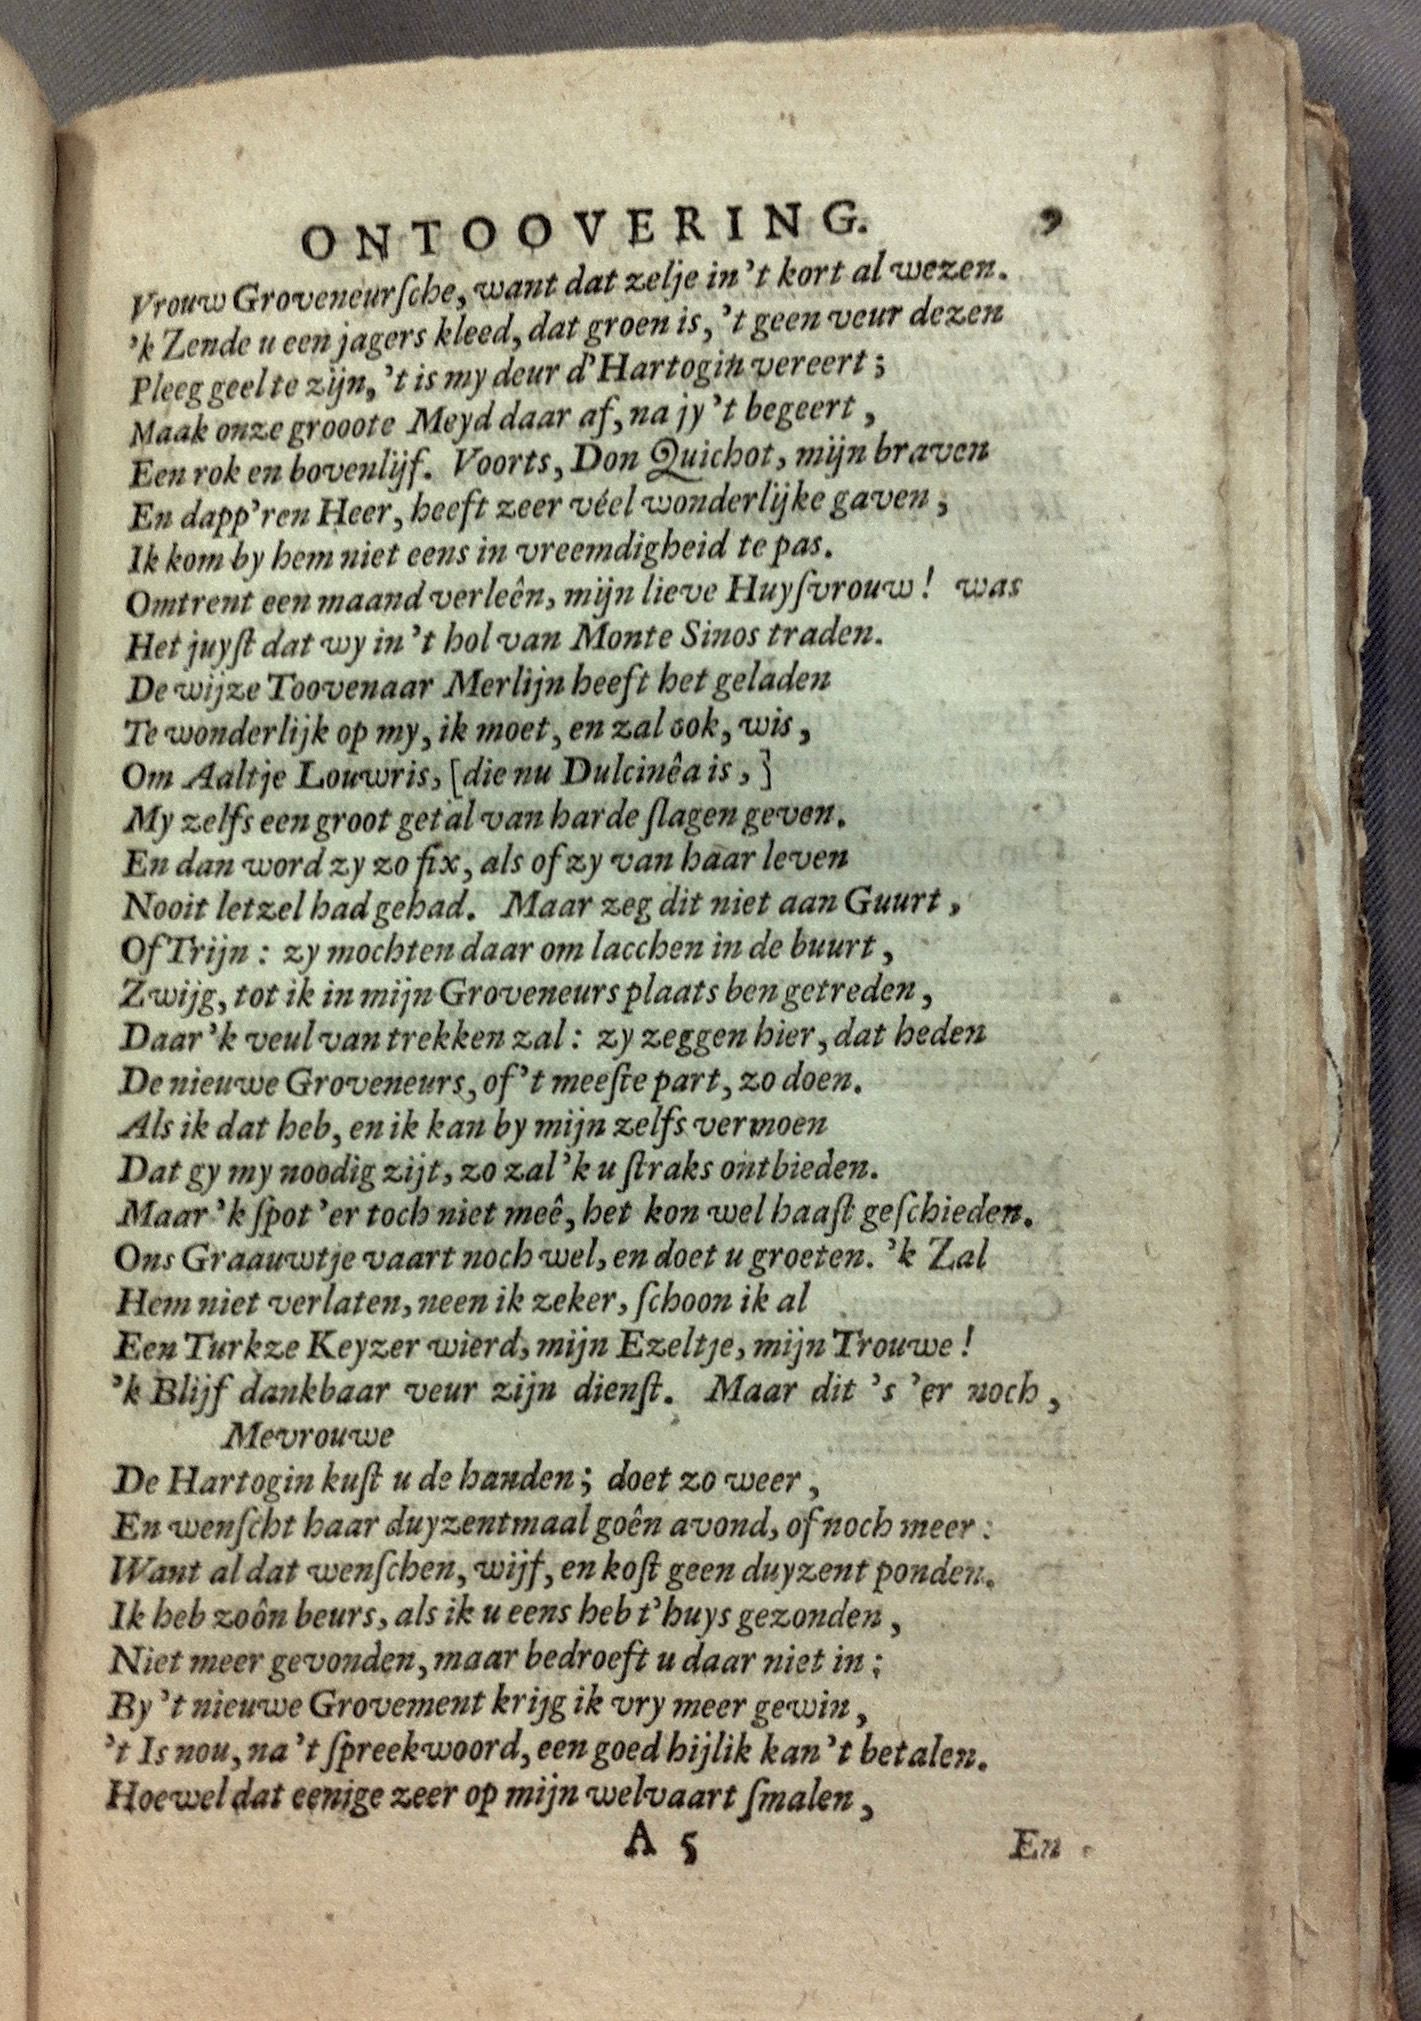 ONTOOVERING. 9
Vrouw Groveneurſche, want dat zelje in 't kort al wezen.
'k Zende u een jagers kleed, dat groen is, 't geen veur dezen
Pleeg geel te zijn, 't is my deur d'Hartogin vereert;
Maak onze grooote Meyd daar af, na jy 't begeert,
Een rok en bovenlijf. Voorts, Don Quichot, mijn braven
En dapp'ren Heer, heeft zeer véel wonderlijke gaven,
Ik kom by hem niet eens in vreemdigheid te pas.
Omtrent een maand verleên, mijn lieve Huyſvrouw! was
Het juyſt dat wy in 't hol van Monte Sinos traden.
De wijze Toovenaar Merlijn heeft het geladen
Te wonderlijk op my, ik moet, en zal ook, wis,
Om Aaltje Louwris, [die nu Dulcinêa is,]
My zelfs een groot getal van harde ſlagen geven.
En dan word zy zo fix, als of zy van haar leven
Nooit letzel had gehad. Maar zeg dit niet aan Guurt,
Of Trijn: zy mochten daar om lacchen in de buurt,
Zwijg, tot ik in mijn Groveneurs plaats ben getreden,
Daar 'k veul van trekken zal: zy zeggen hier, dat heden
De nieuwe Groveneurs, of 't meeſte part, zo doen.
Als ik dat heb, en ik kan by mijn zelfs vermoen
Dat gy my noodig zijt, zo zal 'k u ſtraks ontbieden.
Maar 'k ſpot 'er toch niet meê, het kon wel haaſt geſchieden.
Ons Graauwtje vaart noch wel, en doet u groeten. 'k Zal
Hem niet verlaten, neen ik zeker, ſchoon ik al
Een Turkze Keyzer wierd, mijn Ezeltje, mijn Trouwe!
'k Blijf dankbaar veur zijn dienſt. Maar dit 's 'er noch,
Mevrouwe
De Hartogin kuſt u de handen; doet zo weer,
En wenſcht haar duyzentmaal goên avond, of noch meer:
Want al dat wenſchen, wijf, en koſt geen duyzent ponden.
Ik heb zoôn beurs, als ik u eens heb t'huys gezonden,
Niet meer gevonden, maar bedroeft u daar niet in;
By 't nieuwe Grovement krijg ik vry meer gewin,
't Is nou, na 't ſpreekwoord, een goed hijlik kan 't betalen.
Hoewel dat eenige zeer op mijn welvaart ſmalen,
A 5 En